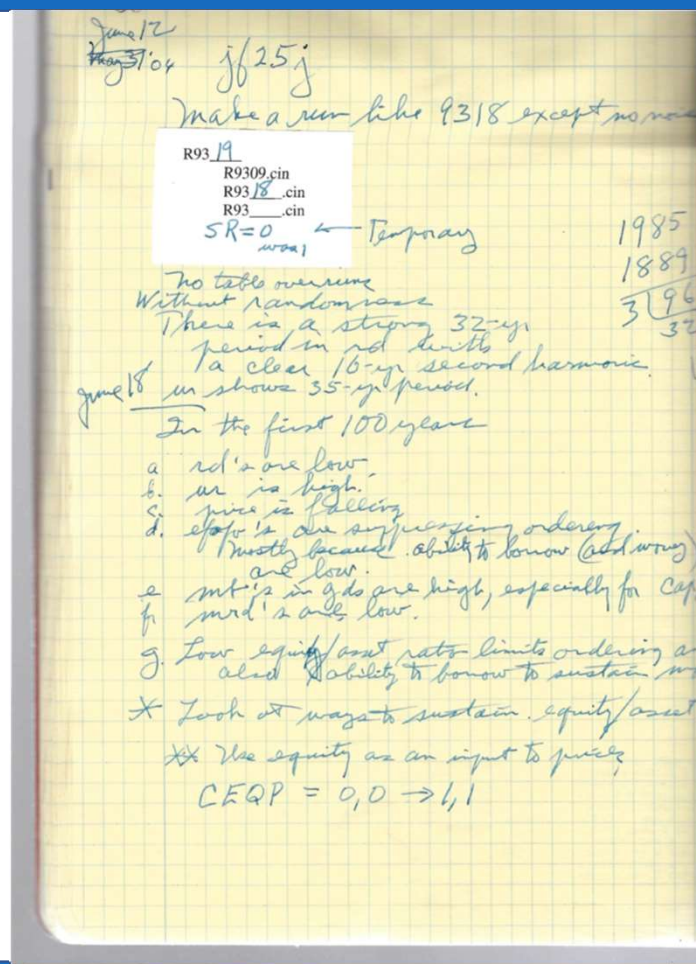 June 12
May 31 '04
jf25j
Make a run like 9318 except no nois
R93 19
R9309.cin
R93 18 .cin
R93____.cin
SR=0 ← Temporary
1985
1889
3 96
32
No table overruns
Without randomness
There is a strong 32-yr
period in rd with
a clear 16-yr second harmonic.
June 18 ur shows 35-yr period.
In the first 100 years
a rd's are low.
b. ur is high.
c. price is falling
d. are suppressing ordering.
mostly because ability to borrow (and money)
are low.
e in gds are high, especially for cap
f mrd's are low.
g. Low equity/asset ratio limits ordering a
also ability to borrow to sustain
* Look at ways to sustain equity/asset
** Use equity as an input to prices
CEQP = 0,0 → 1,1